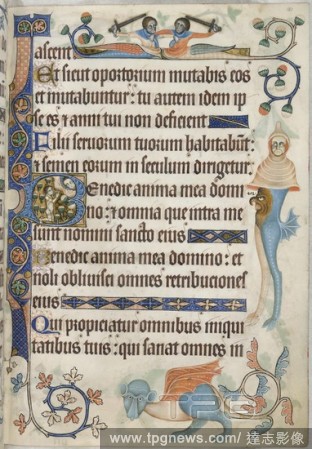 ascent
Et sicut oportorium mutabis eos
et mutabuntur : tu autem idem ip
se es et anni tui non deficient
Filii seruorum tuorum habitabūt :
et semen eorum in seculum dirigetur.
Benedic anima mea domi
no : et omnia que intra me
sunt nomini sancto eius
Benedic anima mea domino : et
noli obliuisci omnes retribuciones
eius
Qui propiciatur omnibus iniqui
tatibus tuis : qui sanat omnes in
TPG
www.tpgnews.com/ 達志影像